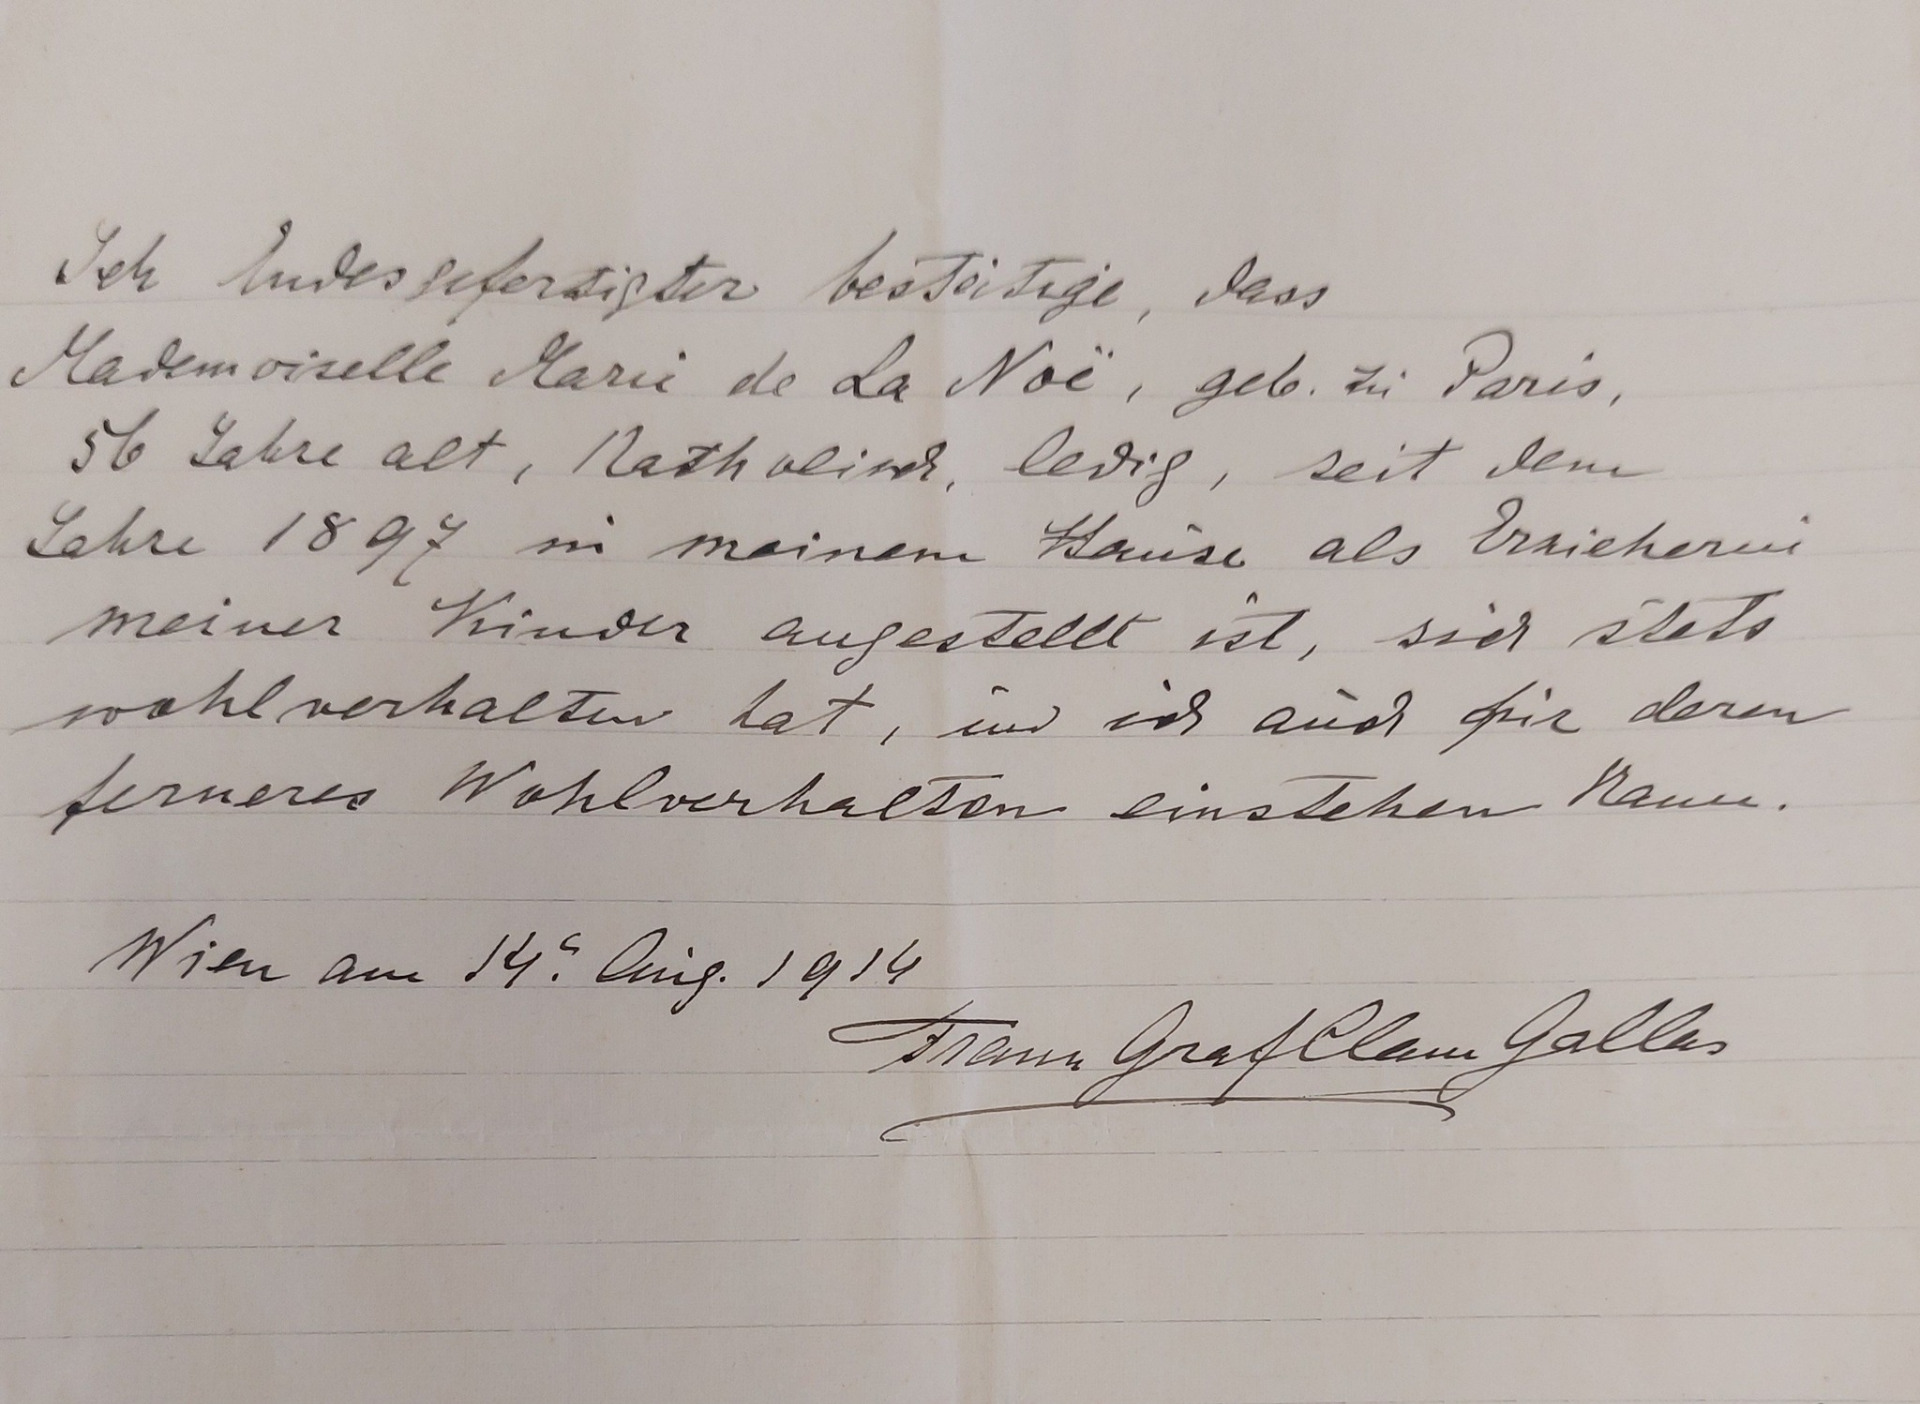 Ich Endesgefertigter bestätige, dass
Mademoiselle Marie de La Noë, geb. zu Paris,
56 Jahre alt, Katholisch, ledig, seit dem
Jahre 1897 in meinem Hause als Erzieherin
meiner Kinder angestellt ist, sich stets
wohlverhalten hat, und ich auch für deren
ferneres Wohlverhalten einstehen kann.
Wien am 14. Aug. 1914
Franz Graf Clam Gallas